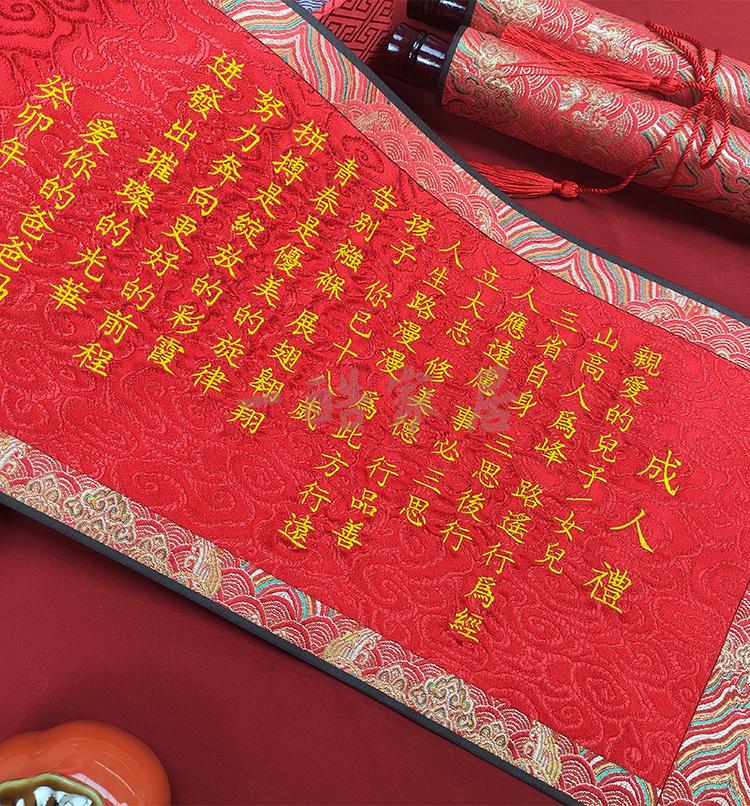 成人禮
親愛的兒子一女兒
山高人爲峰 路遙行爲經
三省自身 三思後行
人應遠慮 事必三思
立大志 修美德 行品善
人生路漫漫 爲此方行遠
孩子 你已十八歲
告别襁褓 展翅翱翔
青春是優美的旋律
拼搏是綻放的彩霞
努力奔向更好的前程
迸發出璀璨的光華
愛你的爸爸
癸卯年
一酷家居